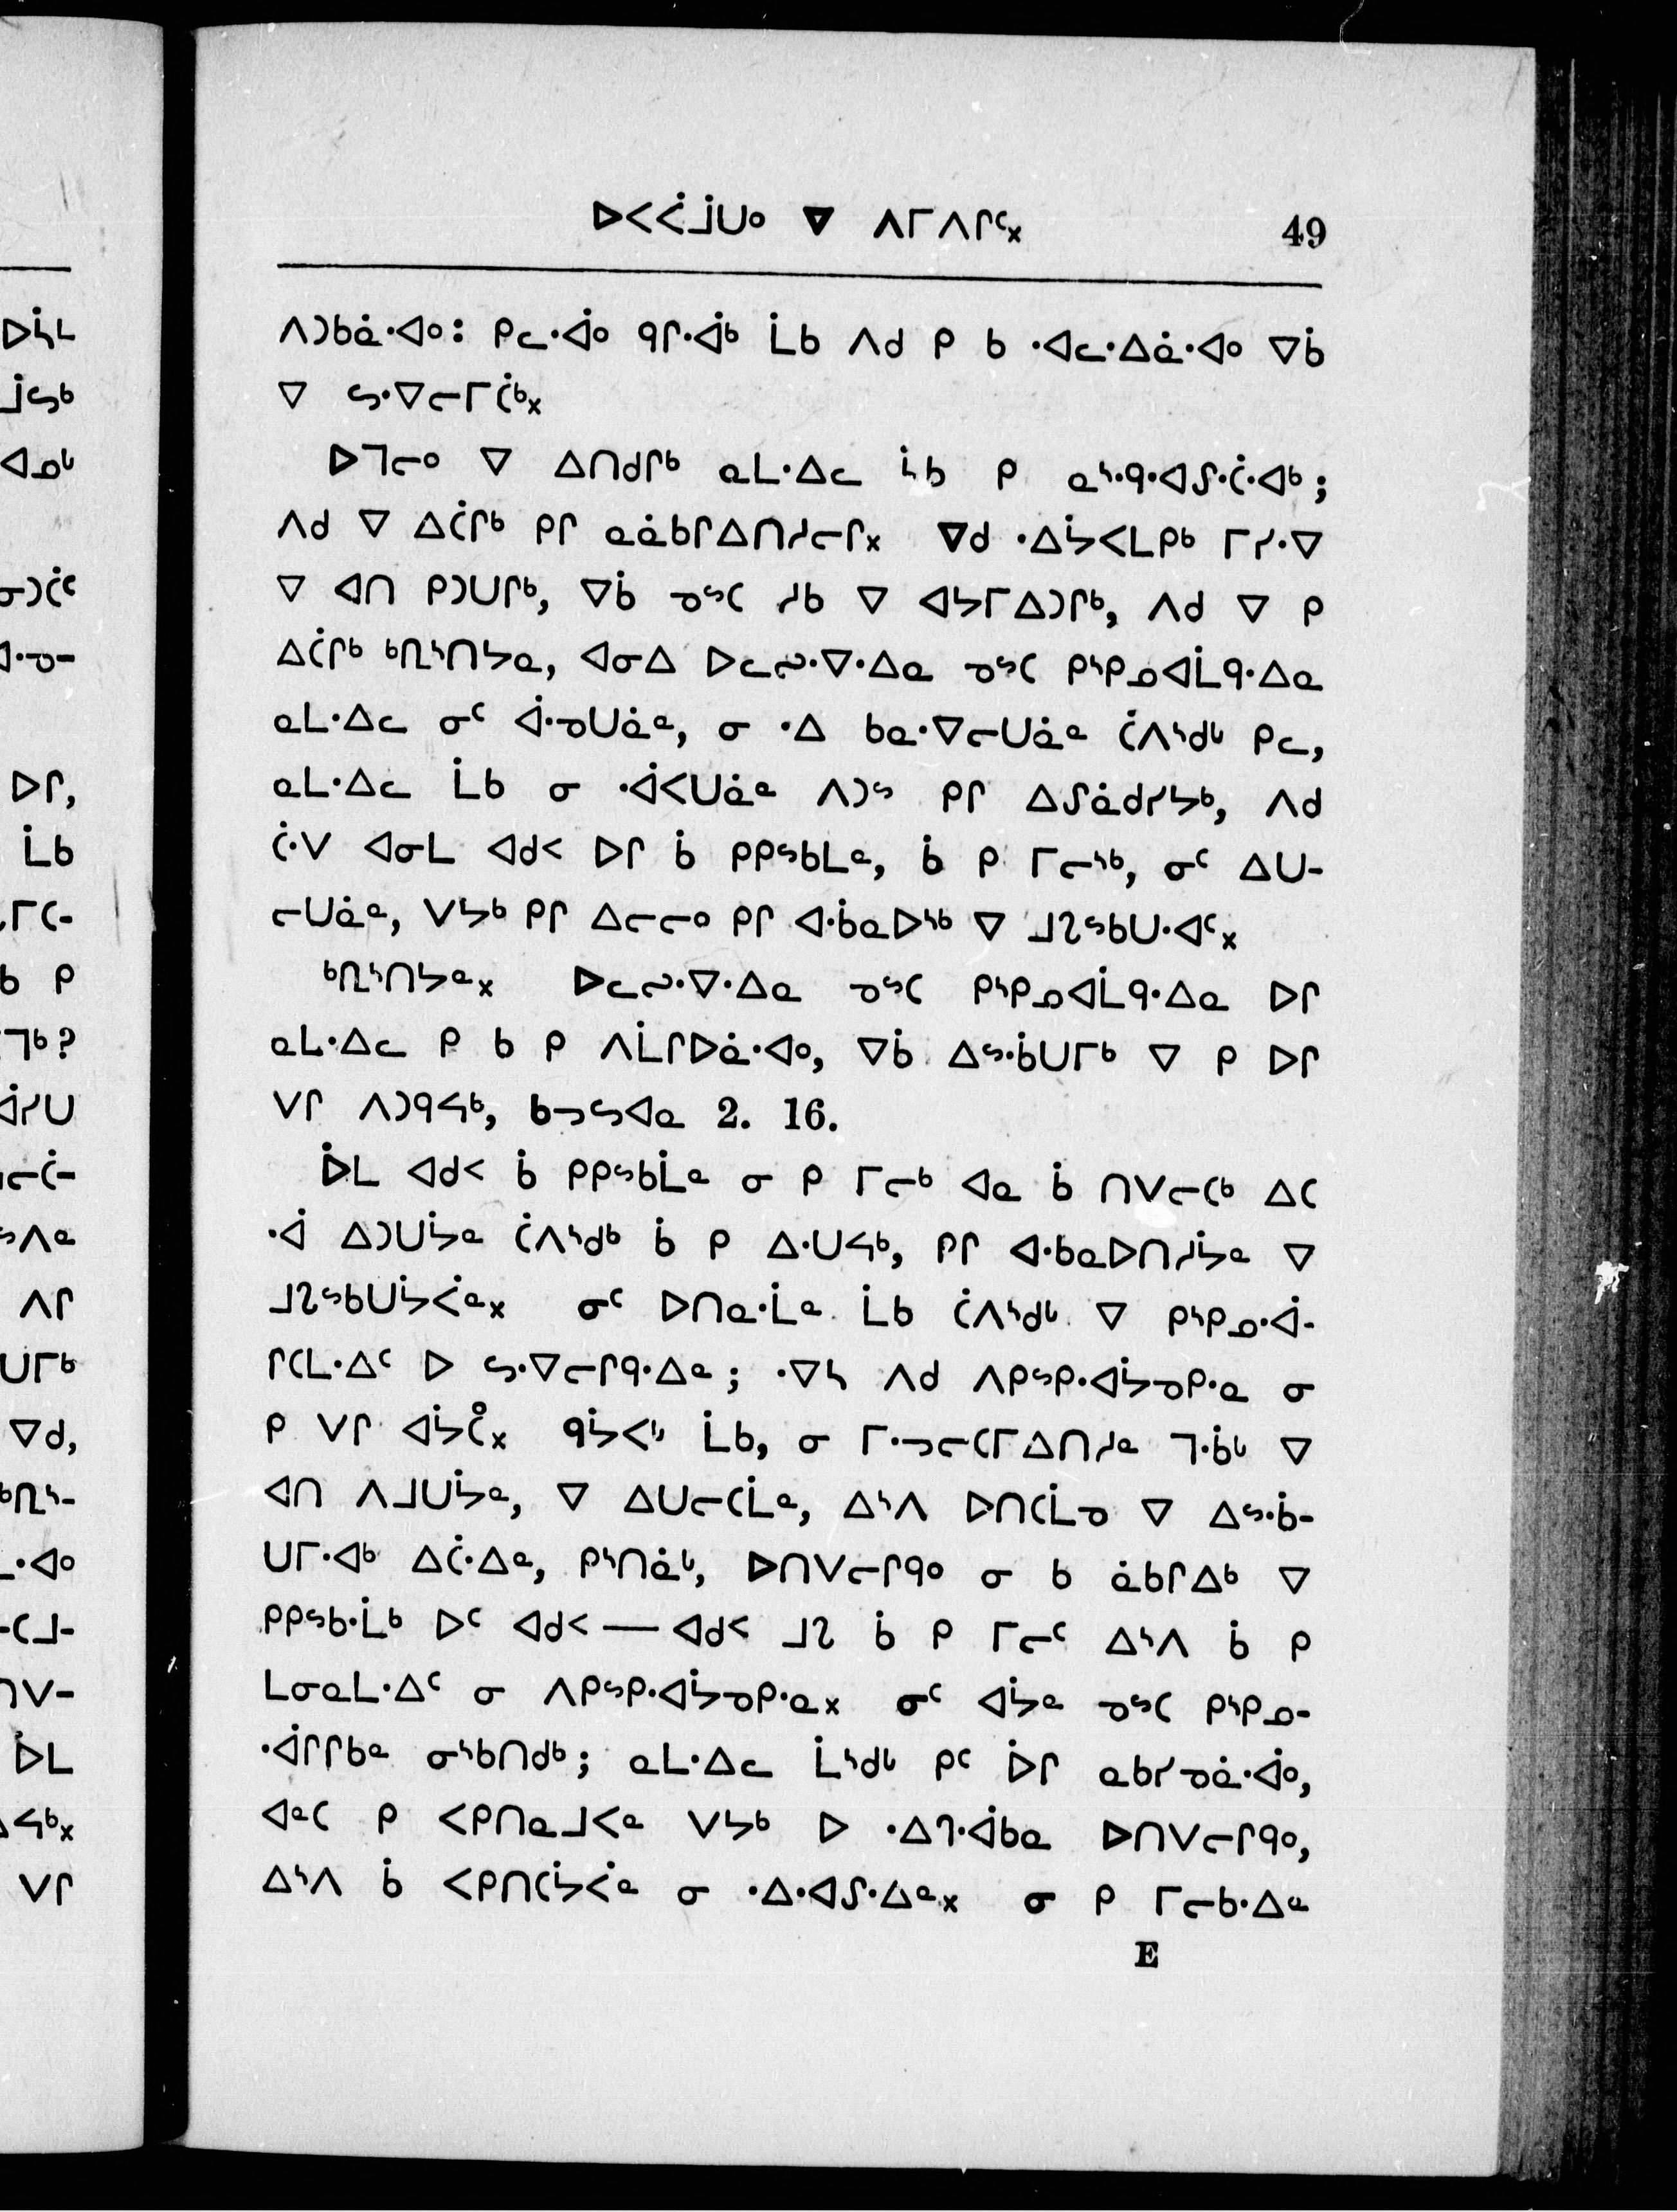 ᐅᐸᐹᒨᑌᐤ ᐁ ᐱᒥᐱᒋᑦ᙮ 49
ᐱᑐᑲᓈᐧᐊᐤ: ᑭᓚᐧᐋᐤ ᑫᒋᐧᐋᒃ ᒫᑲ ᐱᑯ ᑭ ᑲ ᐧᐊᓚᐧᐃᓈᐧᐊᐤ ᐁᑳ
ᐁ ᔕᐧᐁᓕᒥᑖᒃ᙮
ᐅᒣᓕᐤ ᐁ ᐃᑎᑯᒋᒃ ᓇᒪᐧᐃᓚ ᔮᑲ ᑭ ᓇᔅᐧᑫᐧᐊᔑᐧᑖᐧᐊᒃ;
ᐱᑯ ᐁ ᐃᑖᒋᒃ ᑭᒋ ᓇᓈᑲᒋᐃᑎᓱᓕᒋ᙮ ᐁᑯ ᐧᐃᔮᐸᒪᑭᒃ ᒥᓯᐧᐁ
ᐁ ᐊᑎ ᑭᑐᑌᒋᒃ, ᐁᑳ ᓀᔥᑕ ᓱᑲ ᐁ ᐊᔭᒥᐃᑐᒋᒃ, ᐱᑯ ᐁ ᑭ
ᐃᑖᒋᒃ ᒃᖨᔅᑎᔭᓇ, ᐊᓂᐃ ᐅᓚᔓᐧᐁᐧᐃᓇ ᓀᔥᑕ ᑭᔅᑭᓄᐊᒫᑫᐧᐃᓇ
ᓇᒪᐧᐃᓚ ᓂᑦ ᐋᐧᓀᑌᓈᓐ, ᓂ ᐧᐃ ᑲᓇᐧᐁᓕᑌᓈᓐ ᑖᐱᔅᑯᒡ ᑭᓚ,
ᓇᒪᐧᐃᓚ ᒫᑲ ᓂ ᐧᐋᐸᑌᓈᓐ ᐱᑐᔥ ᑭᒋ ᐃᔑᓈᑯᓯᔭᒃ, ᐱᑯ
ᑖᐧᐯ ᐊᓂᒪ ᐊᑯᑊ ᐅᒋ ᑳ ᑭᑭᔥᑲᒪᓐ, ᑳ ᑭ ᒥᓕᔅᒃ, ᓂᑦ ᐃᑌ-
ᓕᑌᓈᓐ, ᐯᔭᒃ ᑭᒋ ᐃᓕᓕᐤ ᑭᒋ ᐊᐧᑳᓇᐅᔅᒃ ᐁ ᒧᖨᔥᑲᑌᐧᐊᑦ᙮
ᒃᖨᔅᑎᔭᓐ᙮ ᐅᓚᔓᐧᐁᐧᐃᓇ ᓀᔥᑕ ᑭᔅᑭᓄᐊᒫᑫᐧᐃᓇ ᐅᒋ
ᓇᒪᐧᐃᓚ ᑭ ᑲ ᑭ ᐱᒫᒋᐅᓈᐧᐊᐤ, ᐁᑳ ᐃᔥᐧᑳᑌᒥᒃ ᐁ ᑭ ᐅᒋ
ᐯᒋ ᐱᑐᑫᔦᒃ, ᑲᓗᔕᐊᓇ 2. 16.
ᐆᒪ ᐊᑯᑊ ᑳ ᑭᑭᔥᑲᒫᓐ ᓂ ᑭ ᒥᓕᒃ ᐊᓇ ᑳ ᑎᐯᓕᑕᒃ ᐃᑕ
ᐧᐋ ᐃᑐᑌᔮᓐ ᑖᐱᔅᑯᒃ ᑳ ᑭ ᐃᐧᑌᔦᒃ, ᑭᒋ ᐊᐧᑲᓇᐅᑎᓱᔮᓐ ᐁ
ᒧᖨᔥᑲᑌᔮᐹᓐ᙮ ᓂᑦ ᐅᑎᓇᐧᒫᓐ ᒫᑲ ᑖᐱᔅᑯᒡ ᐁ ᑭᔅᑭᓄᐧᐋ-
ᒋᑕᒪᐧᐃᑦ ᐅ ᔕᐧᐁᓕᒋᑫᐧᐃᓐ; ᐧᐁᓴ ᐱᑯ ᐱᑭᔥᑭᐧᐊᔮᓀᑭᐧᓇ ᓂ
ᑭ ᐯᒋ ᐊᔮᑖᐤ᙮ ᑫᔮᐸᒡ ᒫᑲ, ᓂ ᒥᐧᓗᓕᑕᒥᐃᑎᓱᓐ ᒣᐧᑳᒡ ᐁ
ᐊᑎ ᐱᒧᑌᔮᓐ, ᐁ ᐃᑌᓕᑕᒫᓐ, ᐃᔅᐱ ᐅᑎᑕᒫᓀ ᐁ ᐃᔥᐧᑳ-
ᑌᒥᐧᐊᒃ ᐃᑖᐧᐃᓐ, ᑭᔅᑎᓈᒡ, ᐅᑎᐯᓕᒋᑫᐤ ᓂ ᑲ ᓈᑲᒋᐃᒃ ᐁ
ᑭᑭᔥᑲᐧᒫᒃ ᐅᑦ ᐊᑯᑊ — ᐊᑯᑊ ᒧᖨ ᑳ ᑭ ᒥᓕᑦ ᐃᔅᐱ ᑳ ᑭ
ᒪᓂᓇᒪᐧᐃᑦ ᓂ ᐱᑭᔥᑭᐧᐊᔮᓀᑭᐧᓇ᙮ ᓂᑦ ᐊᔮᓐ ᓀᔥᑕ ᑭᔅᑭᓄ-
ᐧᐋᒋᒋᑲᓐ ᓂᔅᑲᑎᑯᒃ; ᓇᒪᐧᐃᓚ ᒫᔅᑯᒡ ᑭᑦ ᐆᒋ ᓇᑲᓯᓀᓈᐧᐋᐤ,
ᐊᓐᑕ ᑭ ᐸᑭᑎᓇᒧᐸᓐ ᐯᔭᒃ ᐅ ᐧᐃᒉᐧᐋᑲᓇ ᐅᑎᐯᓕᒋᑫᐤ,
ᐃᔅᐱ ᑳ ᐸᑭᑎᑕᔮᐹᓐ ᓂ ᐧᐃᐧᐊᔑᐧᐃᓐ᙮ ᓂ ᑭ ᒥᓕᑲᐧᐃᓐ
E